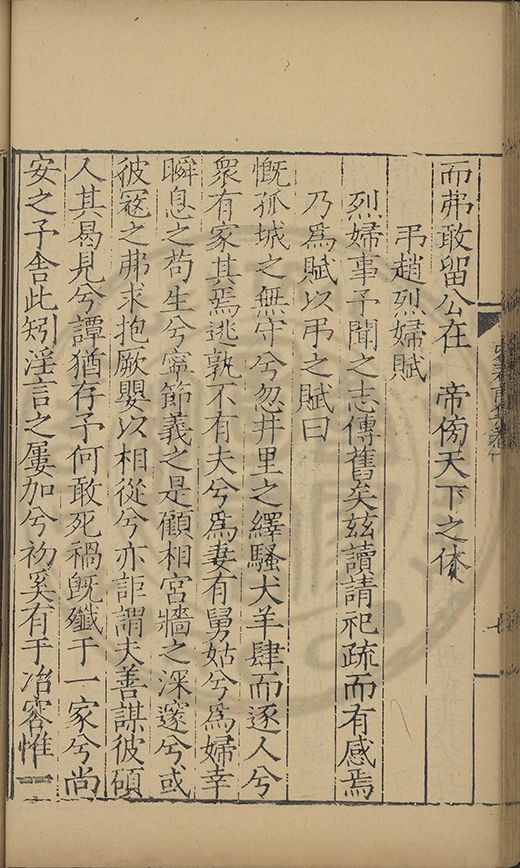 而弗敢留公在　帝傍天下之休
弔趙烈婦賦
烈婦事予聞之志傳舊矣兹讀請祀疏而有感焉
乃爲賦以弔之賦曰
慨孤城之無守兮忽井里之繹騷犬羊肆而逐人兮
衆有家其焉逃孰不有夫兮爲妻有舅姑兮爲婦幸
瞬息之苟生兮寧節義之是顧相宫牆之深邃兮或
彼冦之弗求抱厥嬰以相從兮亦詎謂夫善謀彼碩
人其曷見兮譚猶存予何敢死禍旣殲于一家兮尚
安之予舍此矧淫言之屢加兮初奚有于冶容惟一